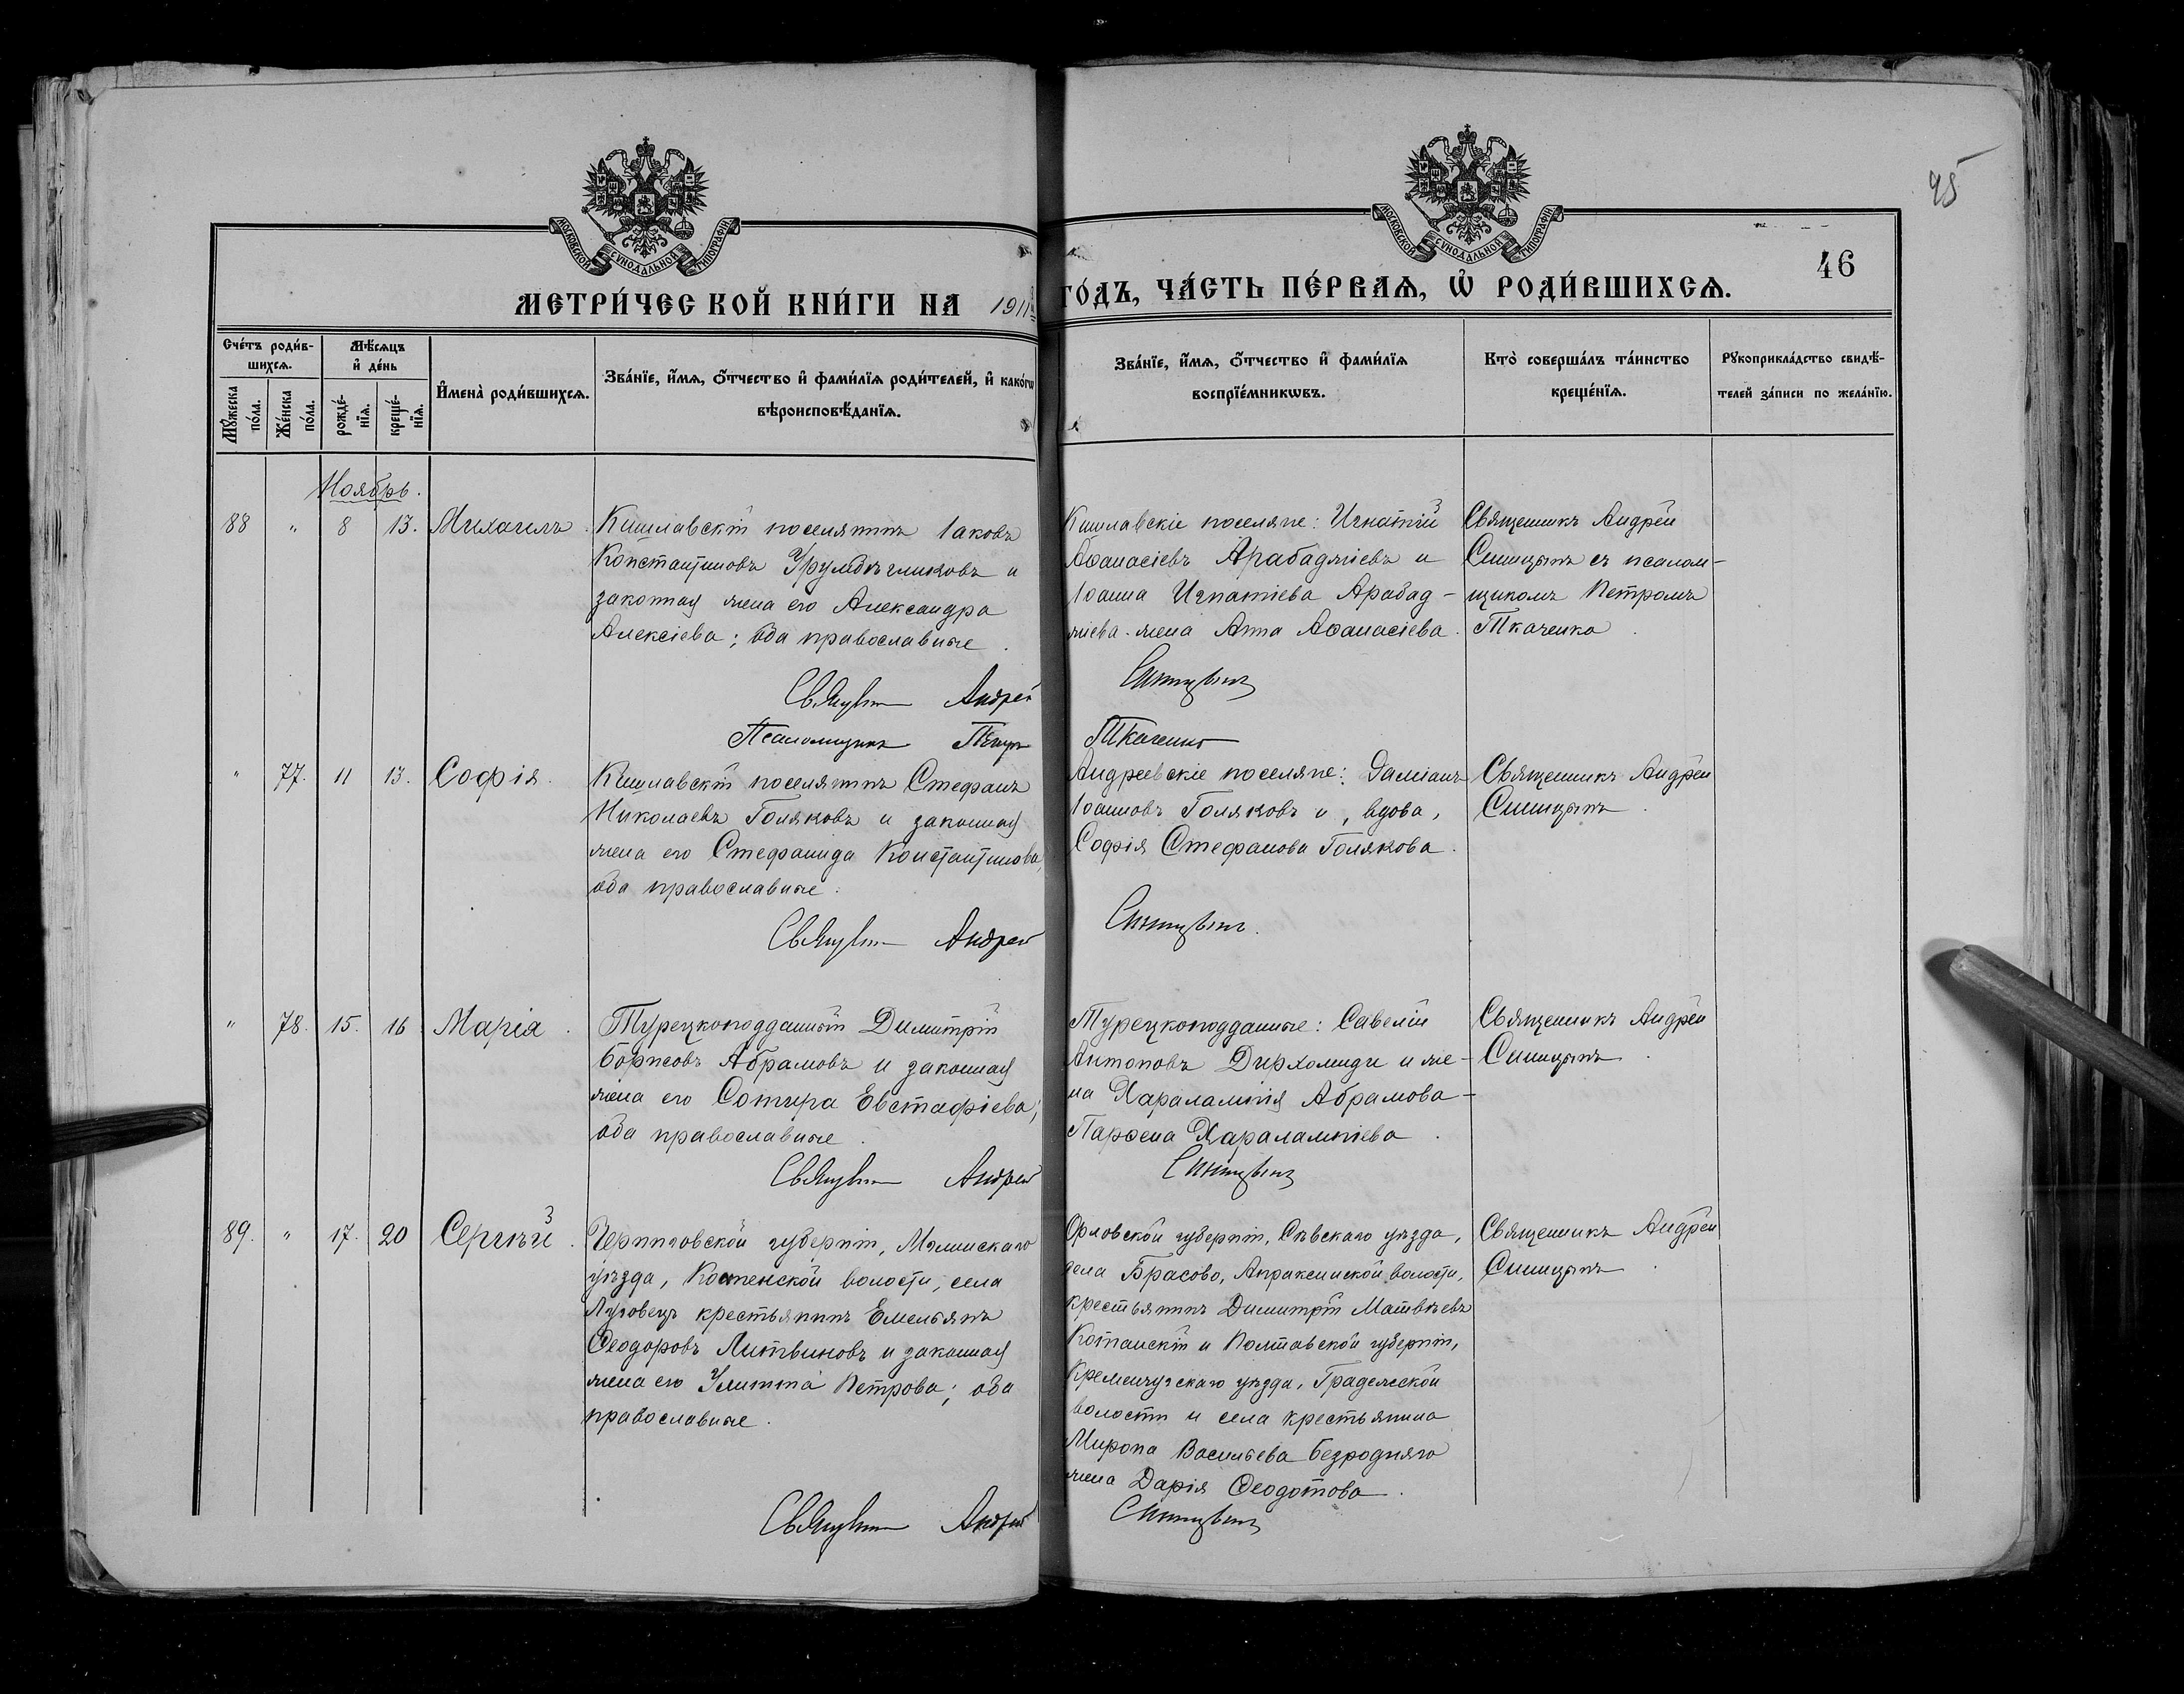 45
46
МОСКОВСКОЙ СУНОДАЛЬНОЙ ТИПОГРАФІИ
МОСКОВСКОЙ СУНОДАЛЬНОЙ ТИПОГРАФІИ
МЕТРИ́ЧЕСКОЙ КНИ́ГИ НА 1911
ГО́ДЪ, ЧА́СТЬ ПЕ́РВАЯ, Ѡ҆ РОДИ́ВШИХСЯ.
Сче́тъ роди́в-
шихся.
Мѣ́сяцъ
и҆ де́нь
Мꙋ́жеска
по́ла.
Же́нска
по́ла.
рожде́-
нїя.
креще́-
нїя.
И҆мена̀ роди́вшихся.
Зва́нїе, и҆́мя, ѻ҆́тчество и҆ фами́лїя роди́телей, и҆ како́гѡ
вѣроисповѣ́данїя.
Зва́нїе, и҆́мя, ѻ҆́тчество и҆ фами́лїя
воспрїе́мникѡвъ.
Кто̀ соверша́лъ та́инство
креще́нїя.
Рꙋкоприкла́дство свидѣ́-
телей за́писи по жела́нїю.
Ноябрь.
88 " 8 13. Михаилъ
Кишлавскій поселянинъ Іаковъ
Константиновъ и
законная жена его Александра
Алексіева; оба православные.
Кишлавскіе поселяне: Игнатій
Аѳанасіевъ Арабаджіевъ и
Іоанна Игнатіева Арабад-
жіева жена Анна Аѳанасіева.
Священникъ Андрей
Синицынъ съ псалом-
щикомъ Петромъ
Ткаченко.
Священникъ Андрей Синицынъ
Псаломщикъ Петръ Ткаченко
" 77. 11 13. Софія.
Кишлавскій поселянинъ Стефанъ
Николаевъ Голяковъ и законная
жена его Стефанида Константинова,
оба православные.
Андреевскіе поселяне: Даміанъ
Іоанновъ Голяковъ и, вдова,
Софія Стефанова Голякова.
Священникъ Андрей
Синицынъ.
Священникъ Андрей Синицынъ.
" 78. 15. 16 Марія.
Турецкоподданный Димитрій
Борисовъ Абрамовъ и законная
жена его Сотира Евстафіева;
оба православные.
Турецкоподданные: Савелій
Антоновъ и же-
на Харалампія Абрамова -
Парѳена Харалампіева.
Священникъ Андрей
Синицынъ.
Священникъ Андрей Синицынъ
89. " 17. 20 Сергѣй.
Черниговской губерніи, Мглинскаго
уѣзда, Костенской волости, села
Луговецъ крестьянинъ Емельянъ
Ѳеодоровъ Литвиновъ и законная
жена его Улитта Петрова; оба
православные.
Орловской губерніи, Сѣвскаго уѣзда,
села Брасово, Апраксинской волости,
крестьянинъ Димитрій Матвѣевъ
Котанскій и Полтавской губерніи,
Кременчугскаго уѣзда, Градежской
волости и села крестьянина
Мирона Васильева Безродняго
жена Дарія Ѳеодотова.
Священникъ Андрей
Синицынъ.
Священникъ Андрей Синицынъ